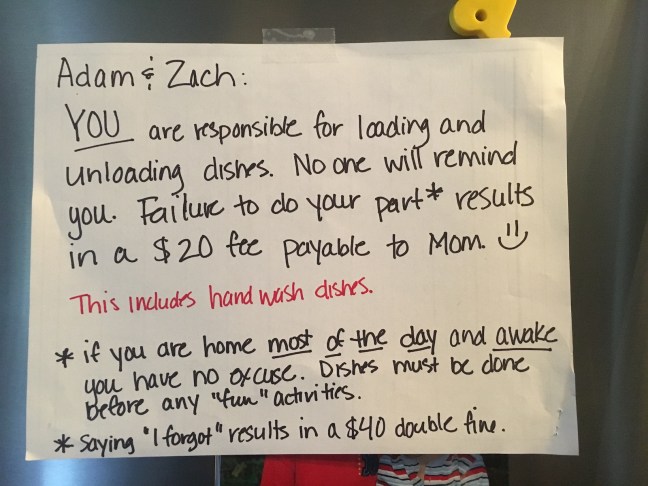 Adam & Zach:
YOU are responsible for loading and
unloading dishes. No one will remind
you. Failure to do your part* results
in a $20 fee payable to Mom. :)
This includes hand wash dishes.
* if you are home most of the day and awake
you have no excuse. Dishes must be done
before any "fun" activities.
* Saying "I forgot" results in a $40 double fine.